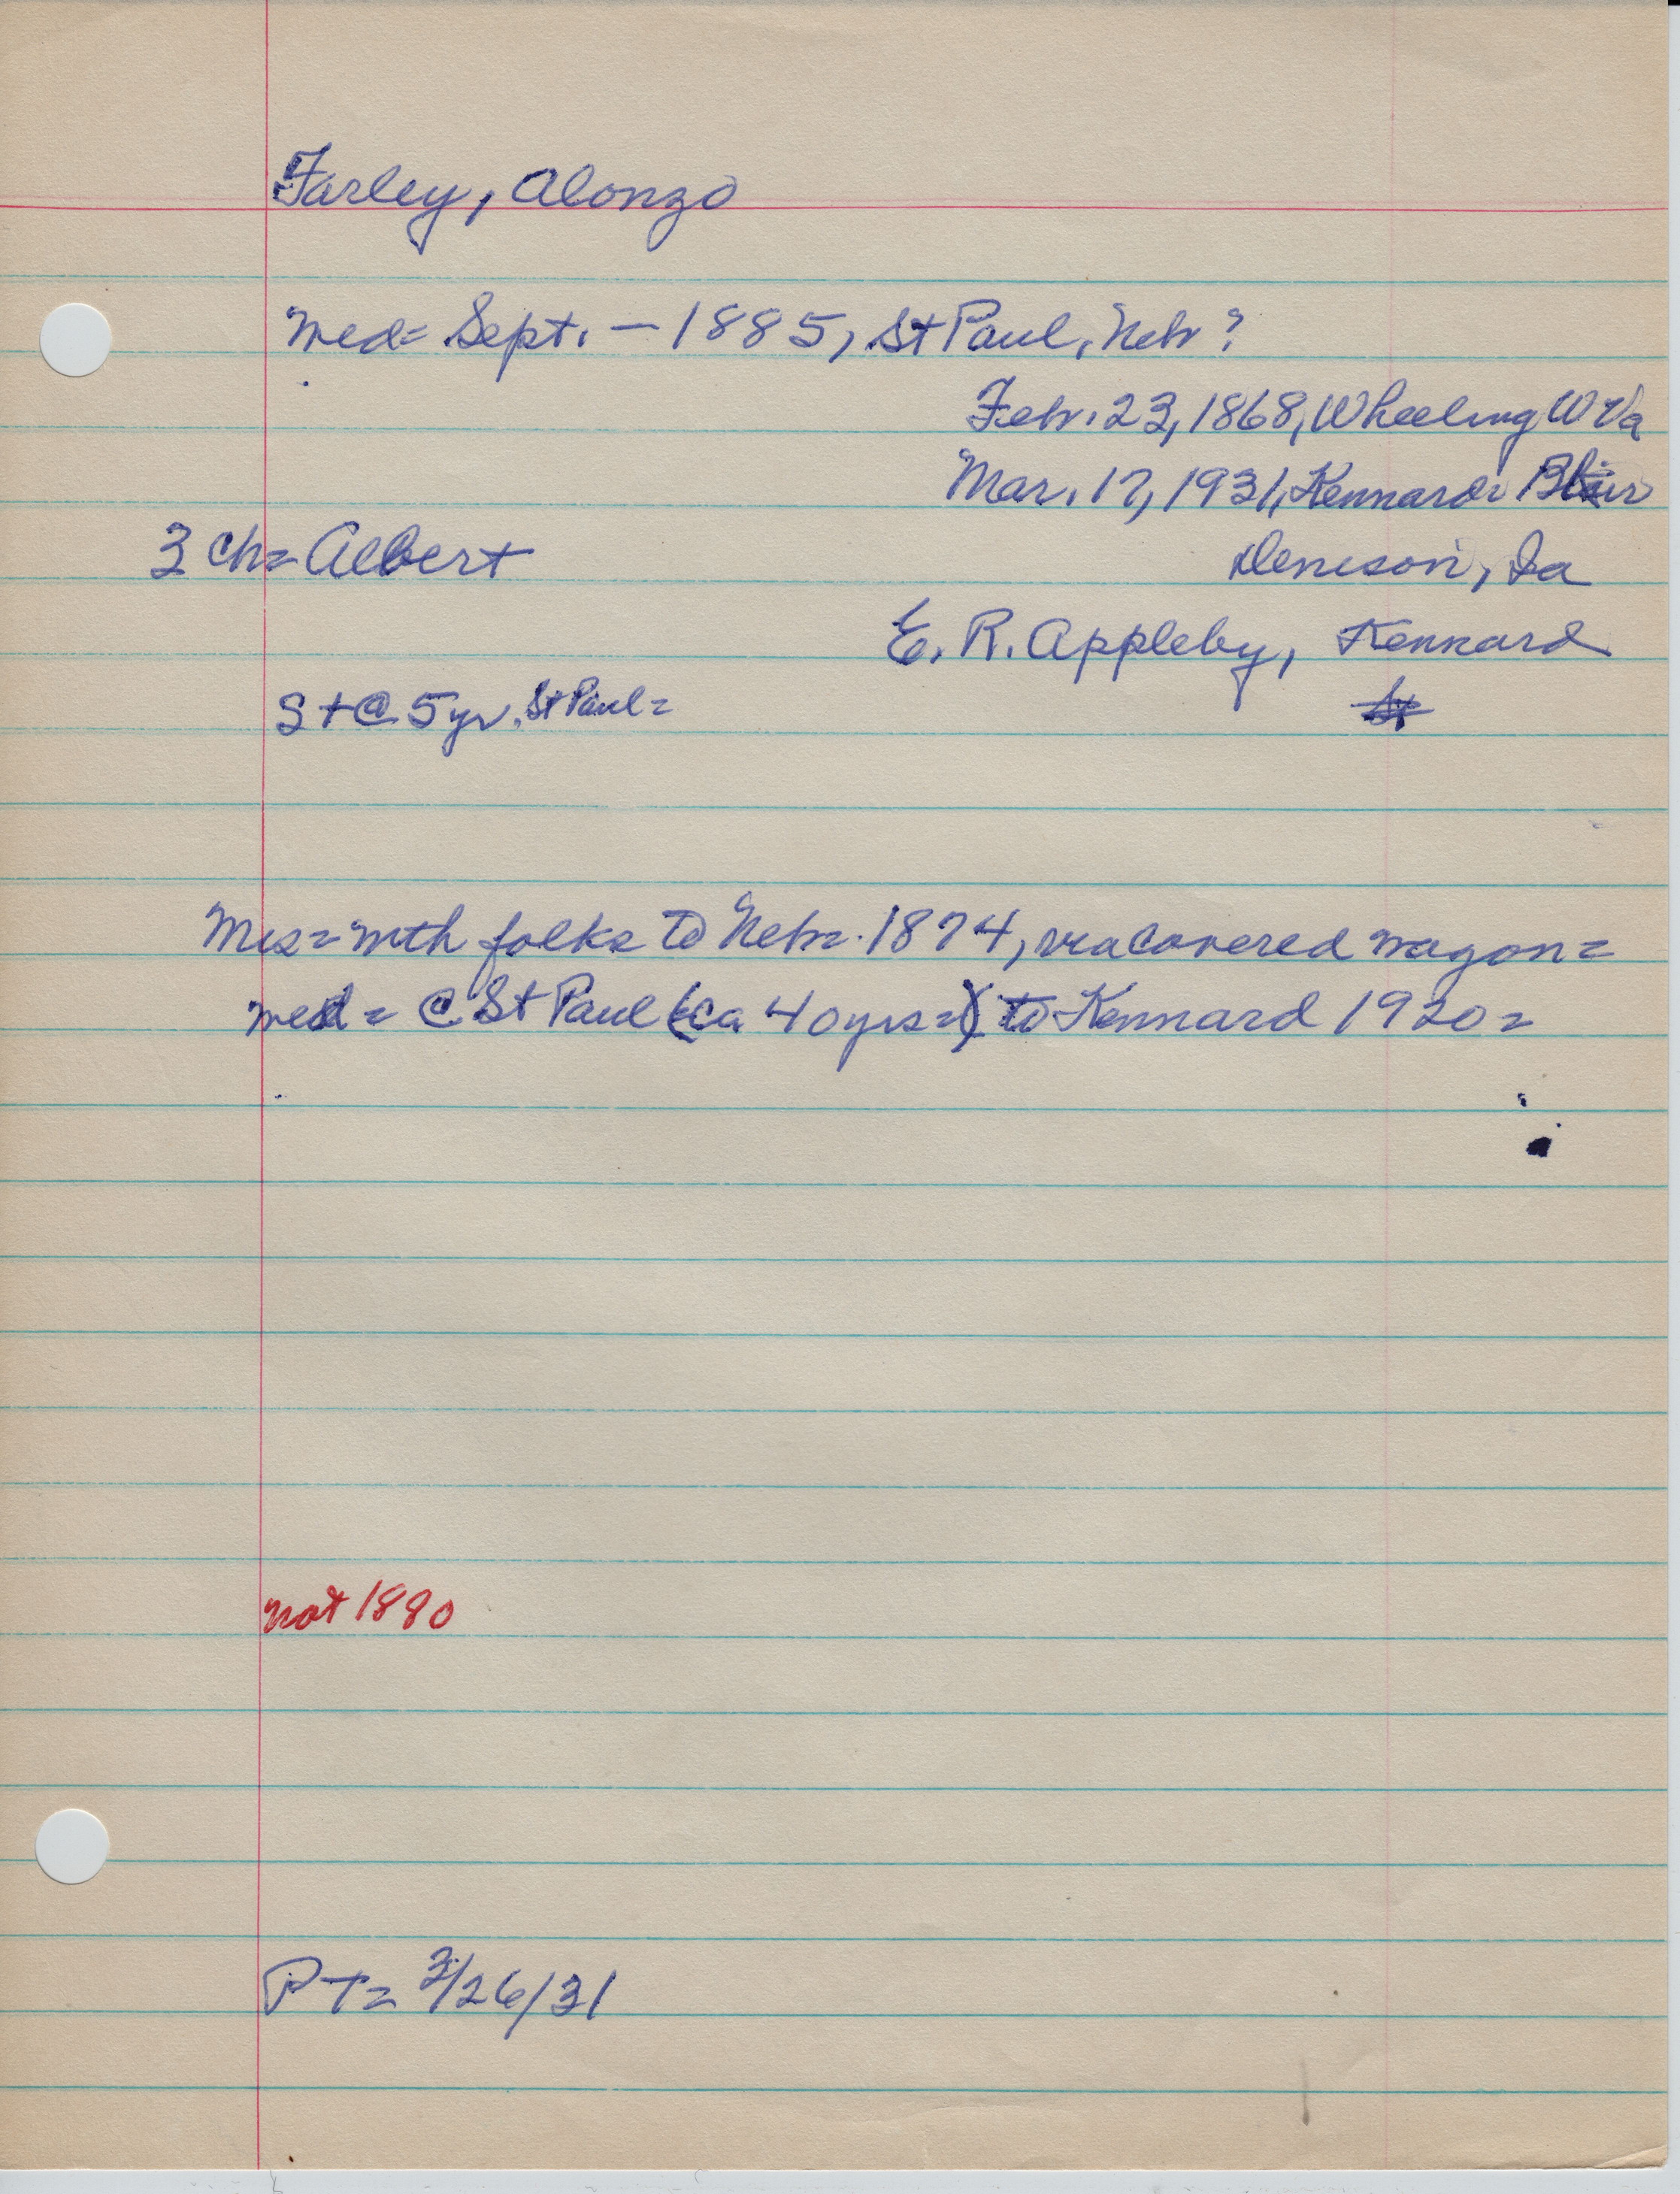 Farley, Alonzo
Med= Sept. — 1885, St Paul, Nebr?
Febr. 23, 1868, Wheeling W Va
Mar. 17, 1931, Kennard: Blair
3 ch= Albert
Denison, Ia
E. R. Appleby, Kennard
S + @ 5 yr. St Paul=
St
Mis= with folks to Nebr. 1874, via covered wagon=
med = @ St Paul (ca 40 yrs=) to Kennard 1920=
not 1880
PT= 3/26/31